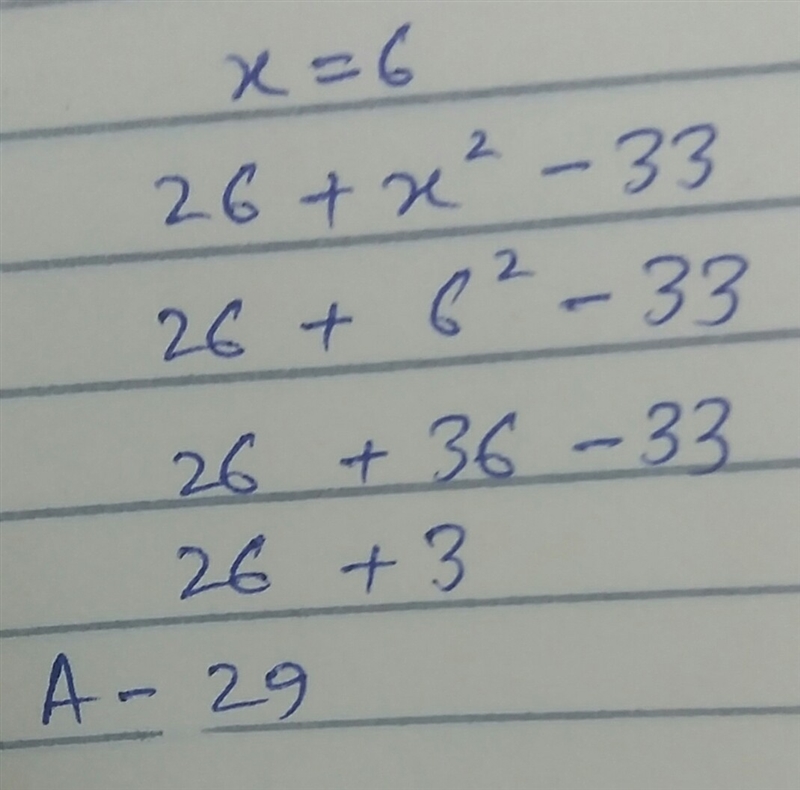 x = 6
26 + x² - 33
26 + 6² - 33
26 + 36 - 33
26 + 3
A - 29